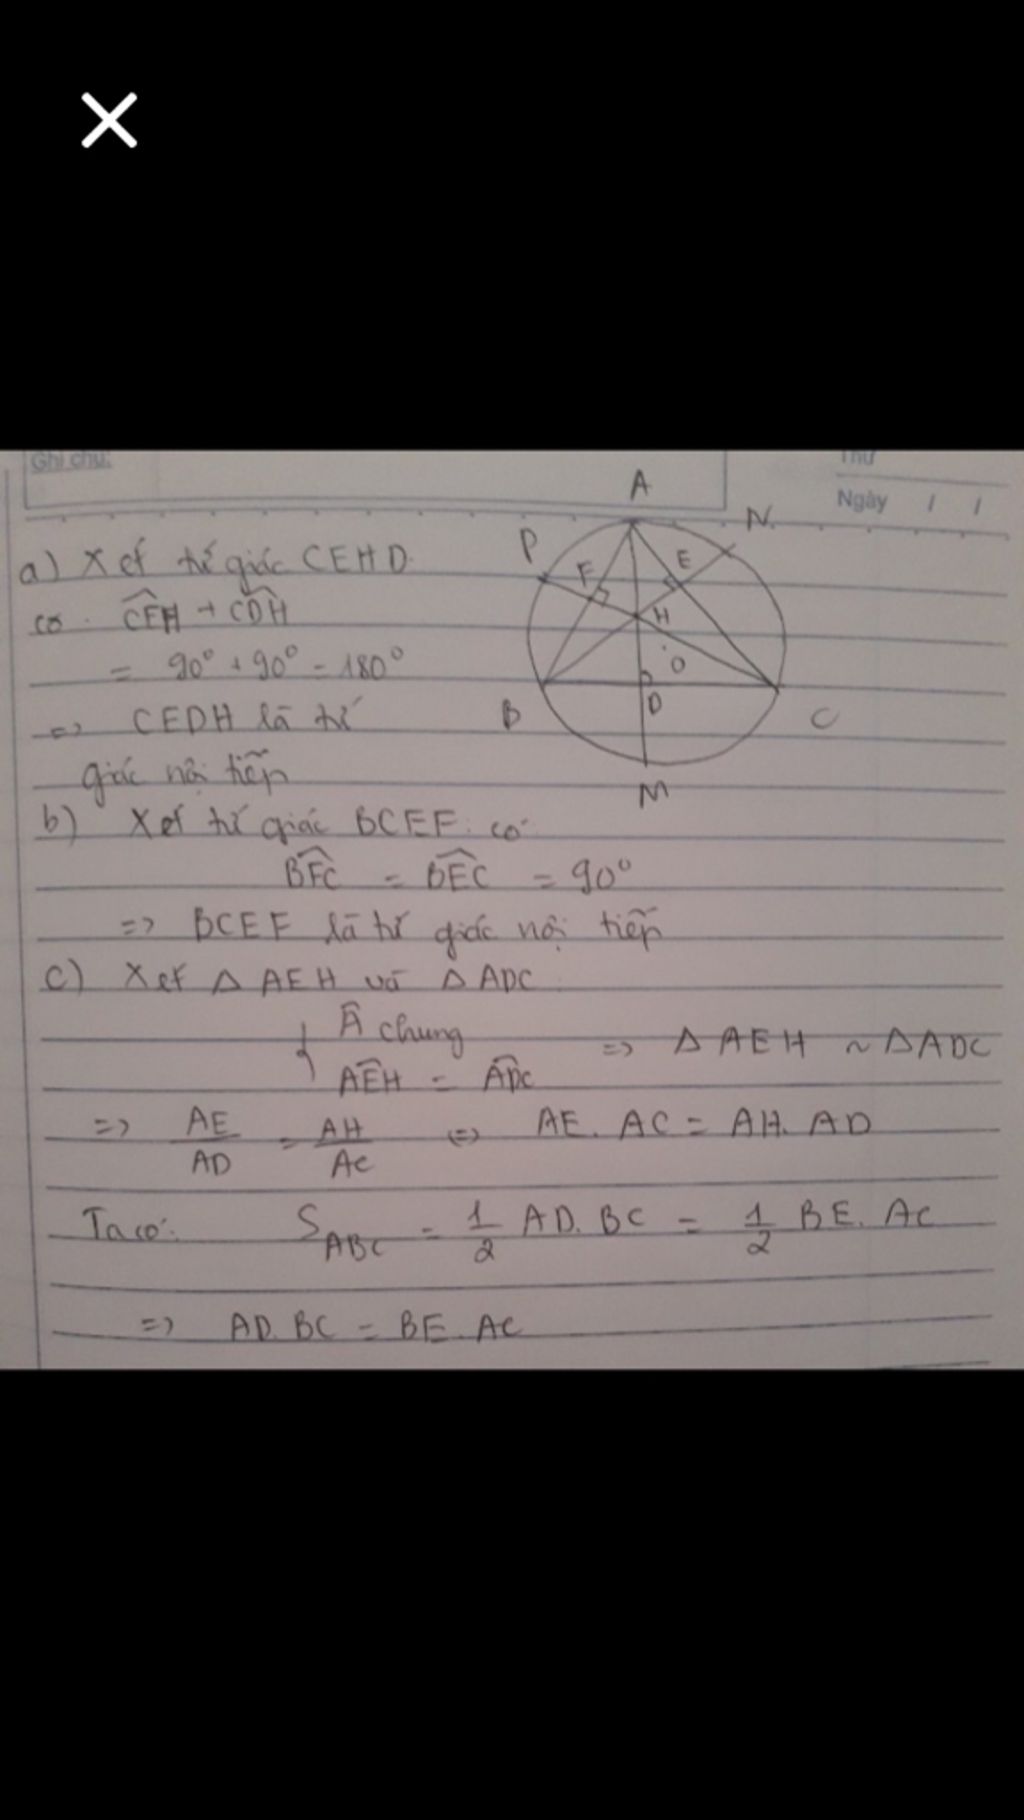 Ghi chú:
Thứ
Ngày / /
A
N
P
F
E
H
O
B
D
C
M
a) Xét tứ giác CEHD.
có. CEH + CDH
= 90° + 90° = 180°
=> CEDH là tứ
giác nội tiếp
b) Xét tứ giác BCEF có:
BFC = BEC = 90°
=> BCEF là tứ giác nội tiếp
c) Xét Δ AEH và Δ ADC:
{ Â chung
AEH = ADC
=> Δ AEH ~ Δ ADC
=> AE/AD = AH/AC <=> AE. AC = AH. AD
Ta có: S_ABC = 1/2 AD. BC = 1/2 BE. AC
=> AD. BC = BE. AC